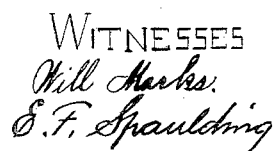 WITNESSES
Will Marks.
E. F. Spaulding